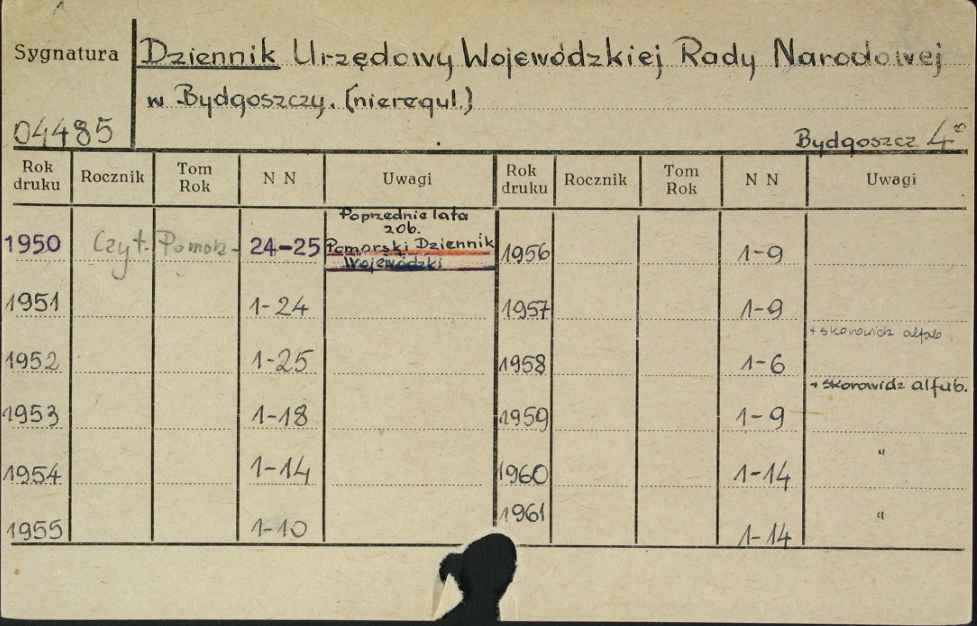 Sygnatura
Dziennik Urzędowy Wojewódzkiej Rady Narodowej
w Bydgoszczy. (nieregul.)
04485
Bydgoszcz 4°
Rok druku Rocznik Tom Rok N N Uwagi Rok druku Rocznik Tom Rok N N Uwagi
Poprzednie lata
zob.
1950 Czyt. Pomorz- 24-25 Pomorski Dziennik
Wojewódzki
1956 1-9
1951 1-24 1957 1-9
+ skorowidz alfab.
1952 1-25 1958 1-6
+ skorowidz alfab.
1953 1-18 1959 1-9
1954 1-14 1960 1-14 "
1955 1-10 1961 1-14 "